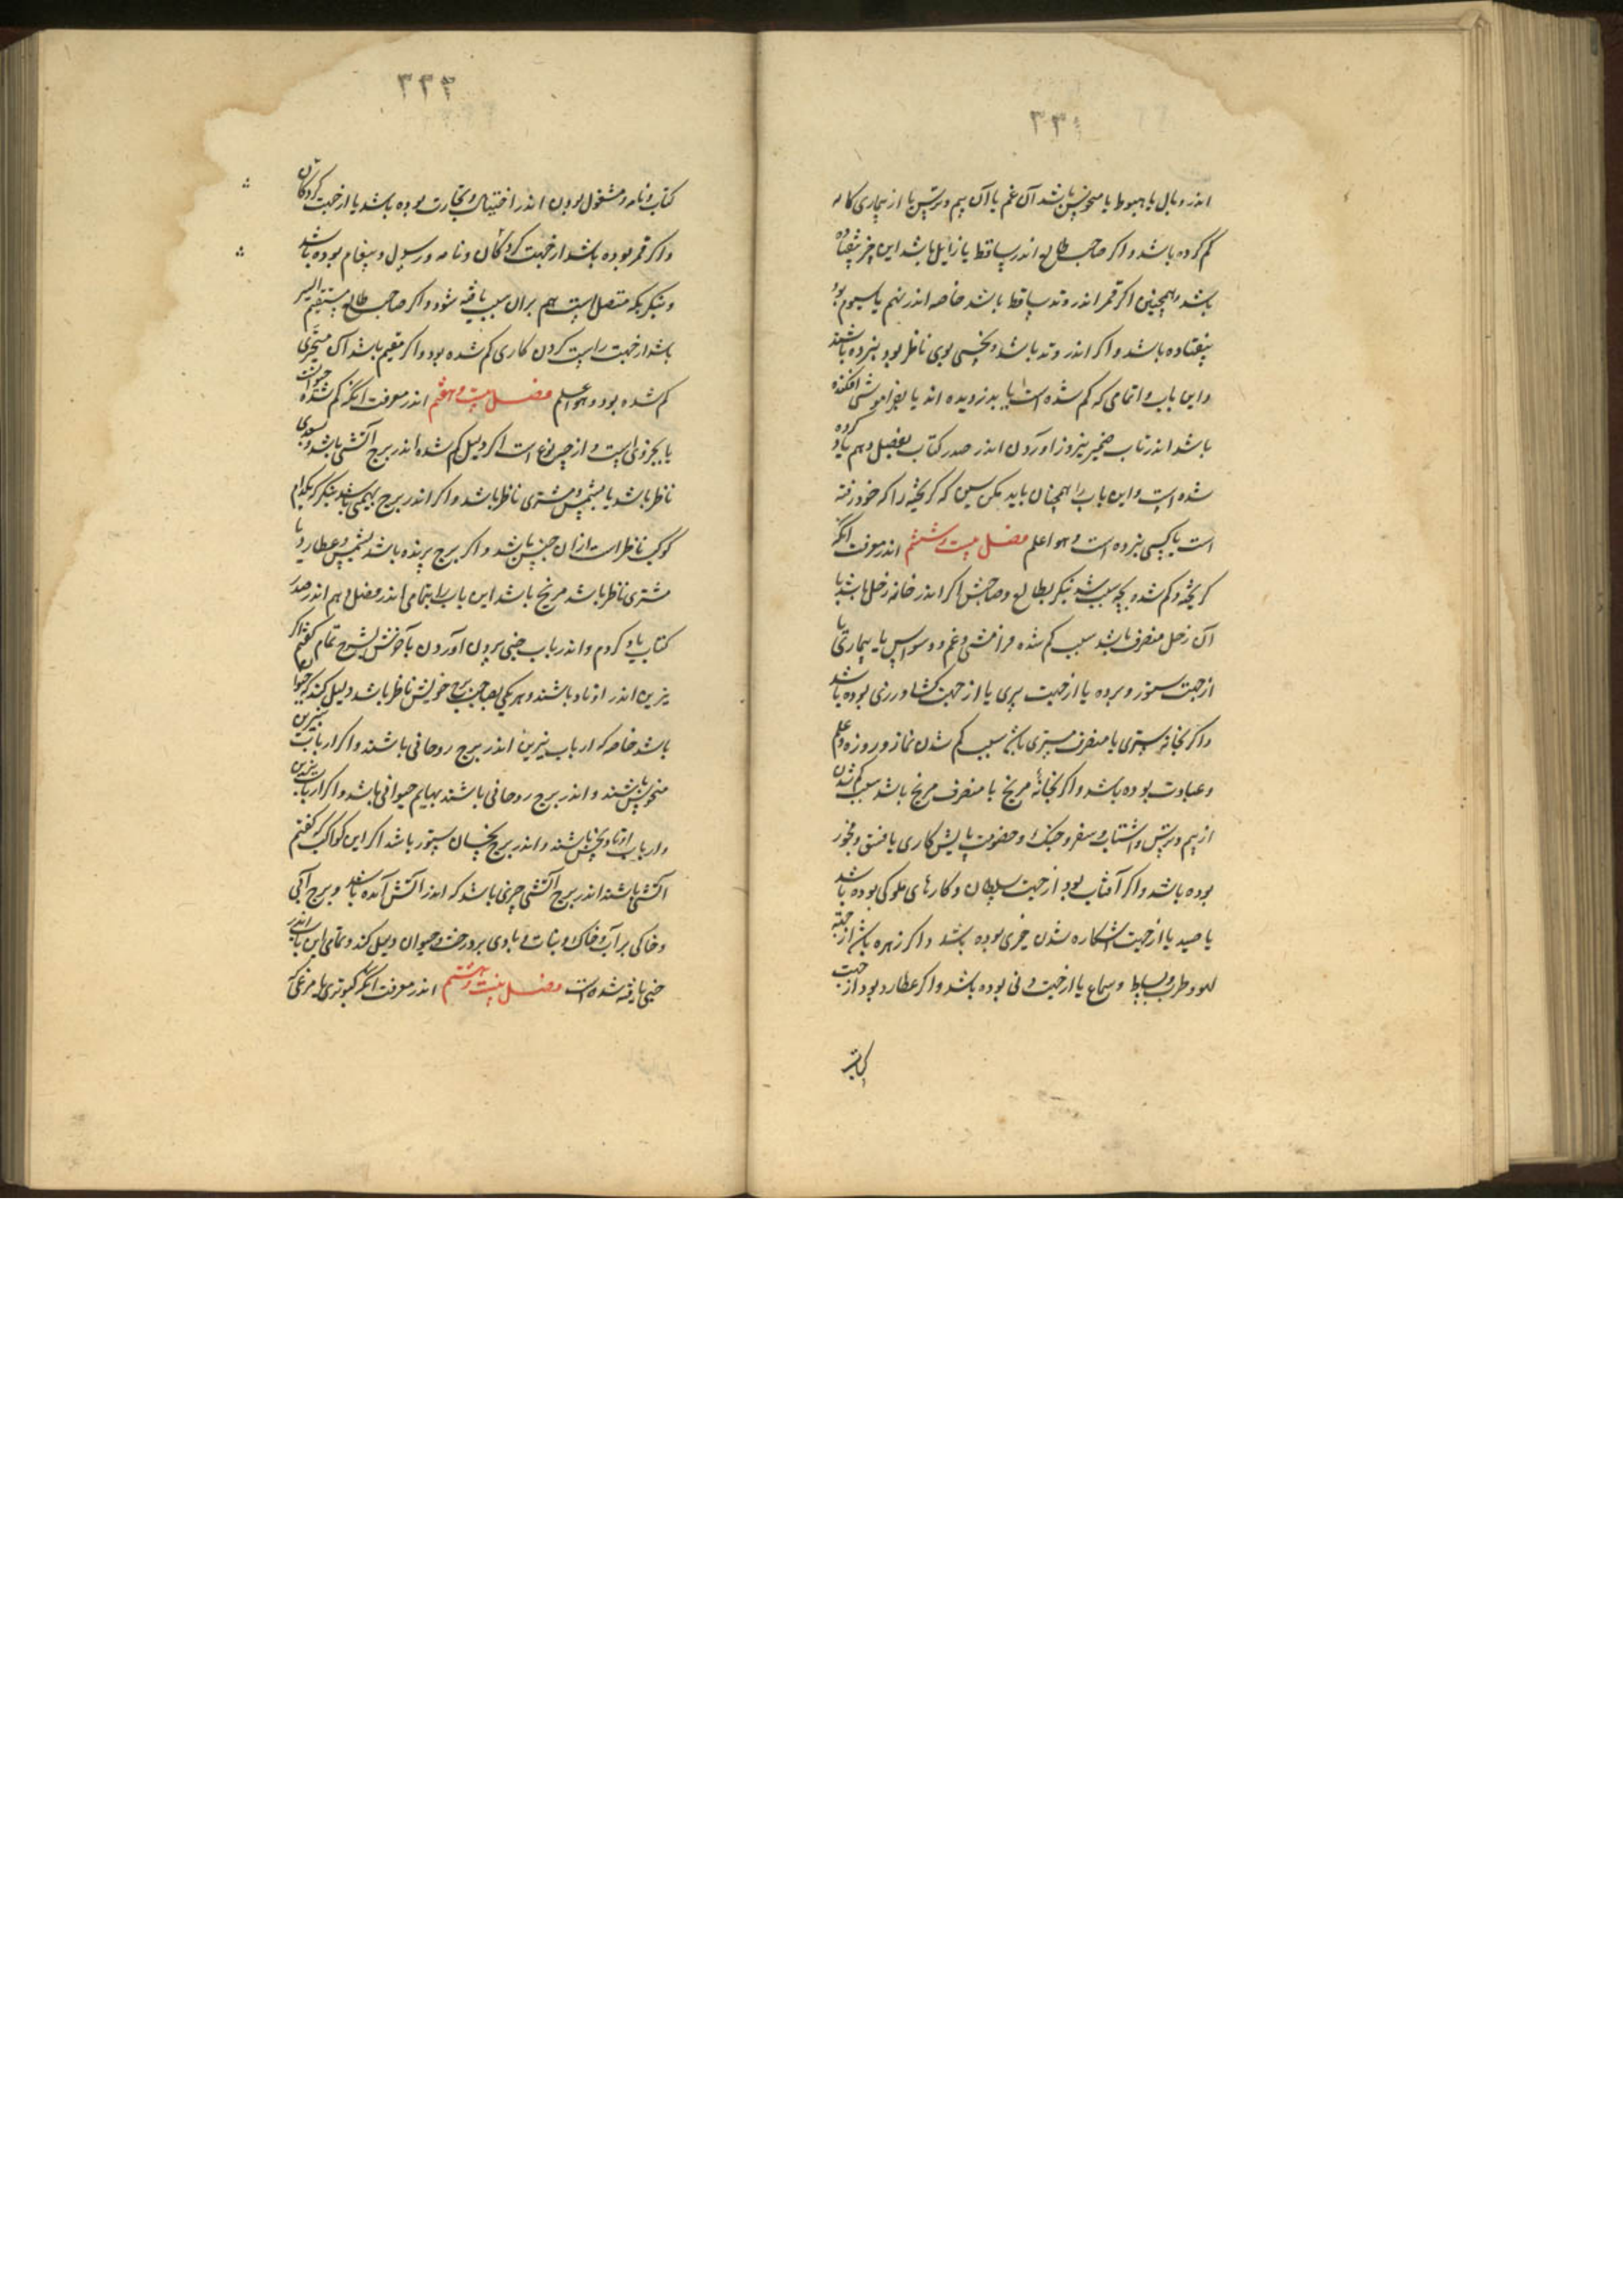 ۳۳۱
اندر وبال یا هبوط یا منحوس باشد آن غم یا آن بیم و ترس یا از بیماری کاله
کم کرده باشد و اکر صاحب طالع اندر ساقط یا زایل باشد این چیز بیفتاده
باشد و همچنین اکر قمر اندر وتد ساقط باشد خاصه اندر نهم یا سیوم بود
بیفتاده باشد و اکر اندر وتد باشد و نحسی بوی ناظر بود ببرده باشند
و این باب و اتمامی که کم شده است یا بدزدیده اند یا بفراموشی افکنده
باشد اندر باب ضمیر بیرون اوردن اندر صدر کتاب بفصل دهم یاد کرده
شده است و این باب را همچنان باید که کریخته را که خود رفته
است یا کسی ببرده است و هو اعلم فصل بیست و ششم اندر معرفت انکه
کریخته و کم شده بچه سبب شد بنکر بطالع و صاحبش اکر اندر خانه زحل باشد یا
آن زحل منصرف باشد سبب کم شده فرامشتی و غم و وسواس یا بیماری یا
از جهت ستور و برده یا از جهت پیری یا از جهت کشاورزی بوده باشد
و اکر بخانه مشتری یا منصرف مشتری باشد سبب کم شدن نماز و روزه و علم
و عبادت بوده باشد و اکر بخانهٔ مریخ یا منصرف مریخ باشد سبب کم شدن
از بیم و ترس و شتاب و سفر و جنک و خصومت یا پیش کاری یا فسق و فجور
بوده باشد و اکر آفتاب بود از جهت سلطان و کارهای ملوکی بوده باشد
یا صید یا از جهت اشکاره شدن چیزی بوده باشد و اکر زهره باشد از جهت
لهو و طرب و بساط و سماع یا از جهت زنی بوده باشد و اکر عطارد بود از جهت
کتاب
۳۳۲
کتاب و نامه و مشغول بودن اندر اختیارات و تجارت بوده باشد یا از جهت کودکان
و اکر قمر بوده باشد از جهت کودکان و نامه و رسول و پیغام بوده باشد
و بنکر بکه متصل است هم بران سبب یافته شود و اکر صاحب طالع مستقیم السیر
باشد از جهت راست کردن کاری کم شده بود و اکر مقیم باشد آن متحیری
کم شده بود و هو اعلم فصل بیست و هفتم اندر معرفت انکه کم شده حیوانست
یا بجز وی است و از چه نوع است اکر دلیل کم شده اندر برج آتشی باشد و بسعدی
ناظر باشد یا بشمس و مشتری ناظر باشد و اکر اندر برج بهیمی باشد بنکر که بکدام
کوکب ناظر است از ان جنس باشد و اکر برج پرنده باشد بشمس و عطارد یا
مشتری ناظر باشد مریخ باشد این باب را بتمامی اندر فصل دهم اندر صدر
کتاب یاد کردم و اندر باب خبی بیرون آوردن بآخرش بشرح تمام کفتم اکر
نیرین اندر اوتاد باشند و هر یکی بصاحب برج خویش ناظر باشد دلیل کند که حیوان
باشد خاصه که ارباب نیرین اندر برج روحانی باشند و اکر ارباب نیرین
منحوس باشند و اندر برج روحانی باشند بهایم حیوانی باشد و اکر ارباب نیرین
و ارباب اوتاد بنحس باشند و اندر برج نحسان ستور باشد اکر این کواکب که کفتم
آتشی باشند اندر برج آتشی چیزی باشد که اندر آتش آمده باشد و برج آبی
و خاکی بر آب و خاک و نبات و بادی بر درخت و حیوان دلیل کند و تمامی این باب اندر
خبی یافته شده است فصل بیست و هشتم اندر معرفت انکه کبوتری یا مرغی که